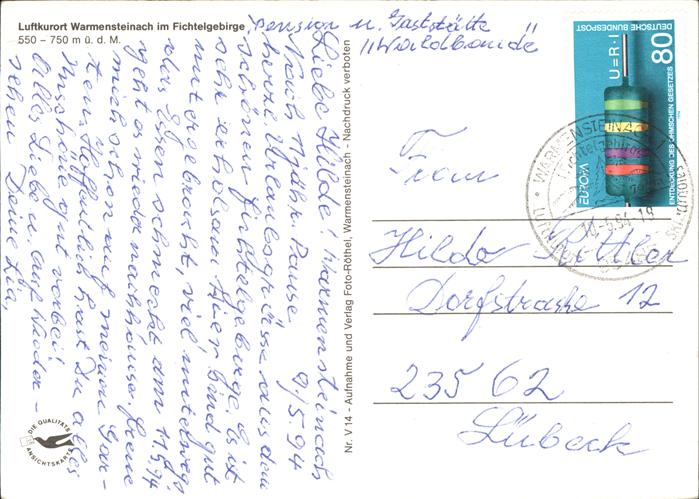 Luftkurort Warmensteinach im Fichtelgebirge
550 – 750 m ü. d. M.
Pension u. Gaststätte
"Waldbaude"
Liebe Hilde! Warmensteinach
Nach 11 jähr. Pause 9/5.94
herzl. Urlaubsgrüsse aus dem
schönen Fichtelgebirge. Es ist
sehr erholsam. Hier sind gut
untergebracht, viel unterwegs,
das Essen schmeckt. Am 11.5.94
geht es wieder nachhause. Freue
mich schon auf meinen Gar-
ten. Hoffentlich hast Du alles
gut vorbei!
Alles Liebe u. auf Wieder-
sehen Deine Lia,
DIE QUALITÄTS
ANSICHTSKARTE
Nr. V 14 - Aufnahme und Verlag Foto-Röthel, Warmensteinach - Nachdruck verboten
DEUTSCHE BUNDESPOST
80
U=R·I
EUROPA
ENTDECKUNG DES OHMSCHEN GESETZES
WARMENSTEINACH
Fichtelgebirge
10.5.94-19
Frau
Hilde
Dorfstrasse 12
23562
Lübeck